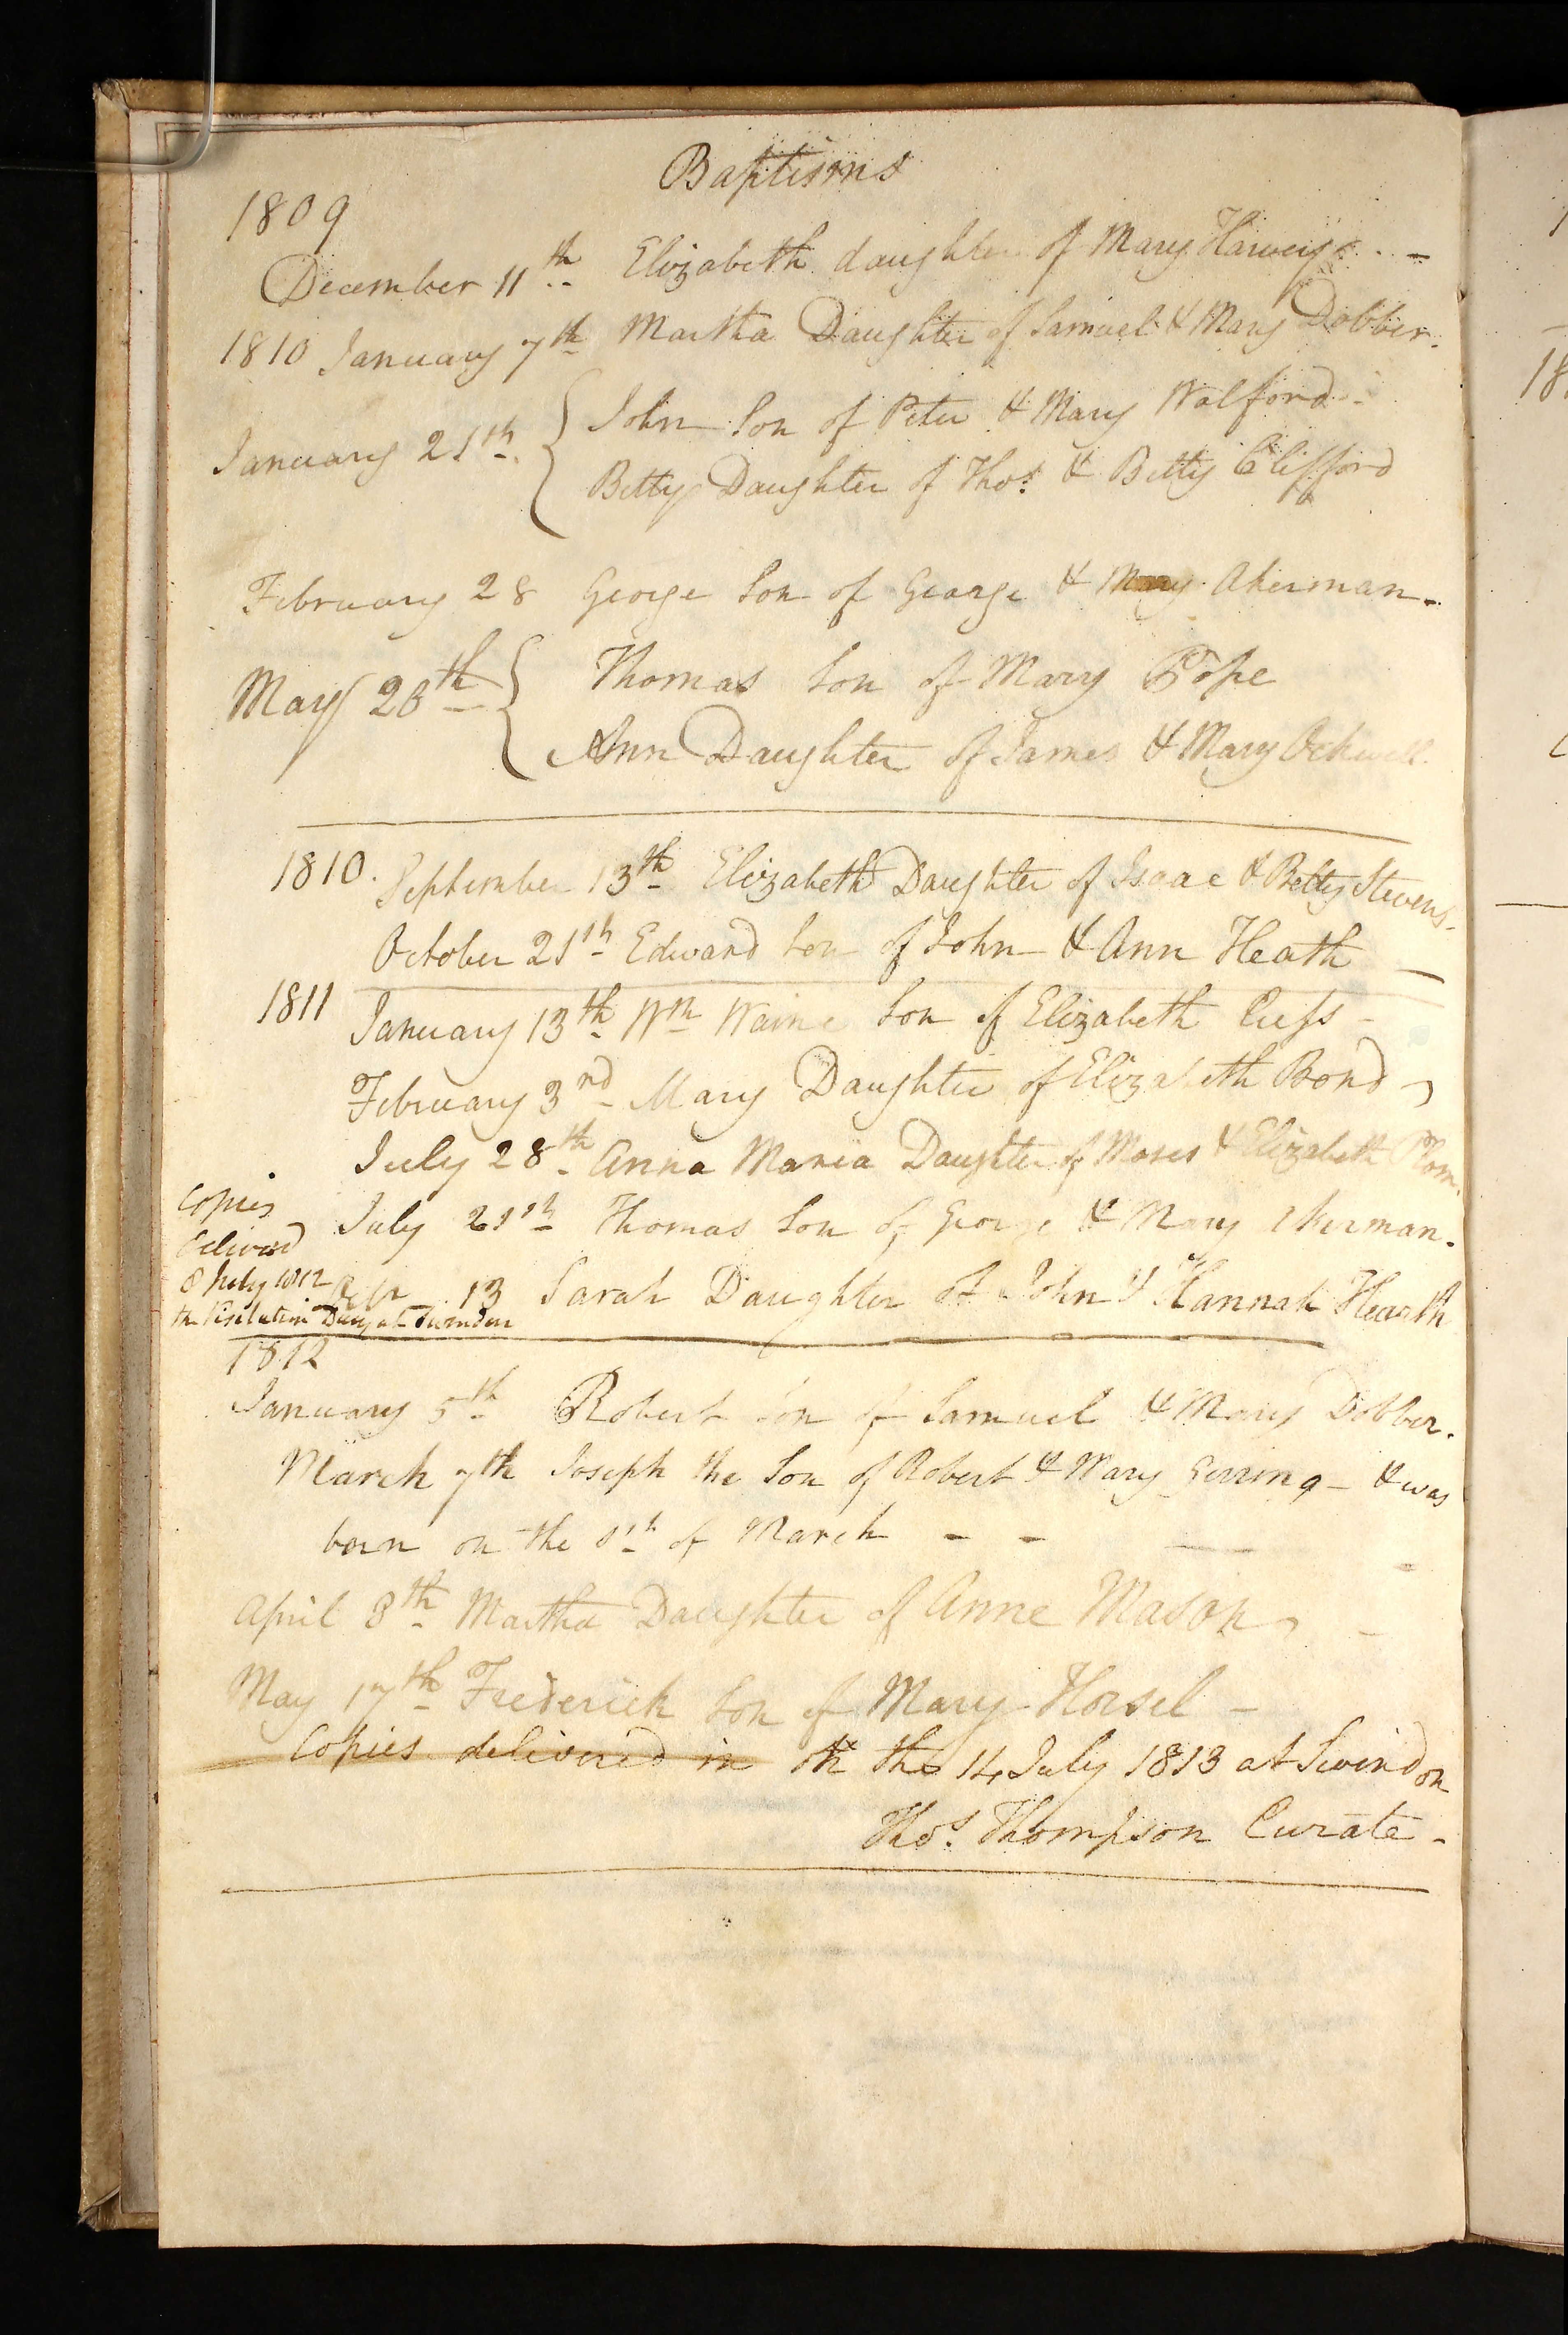 Baptisms
1809
December 11th Elizabeth daughter of Mary Harvey
1810 January 7th Martha Daughter of Samuel & Mary Dobber.
January 21th John Son of Peter & Mary Walford
Betty Daughter of Thos. & Betty Clifford
February 28 George Son of George & Mary Akerman.
May 20th Thomas Son of Mary Pope
Ann Daughter of James & Mary Ockwell
1810. September 13th Elizabeth Daughter of Isaac & Betty Stevens.
October 21th Edward Son of John & Ann Heath
1811 January 13th Wm Waine Son of Elizabeth
February 3rd Mary Daughter of Elizabeth Bond
July 28th Anna Maria Daughter of Moses & Elizabeth
July 21th Thomas Son of George & Mary Akerman.
Copies
delivered
8 July 1812
the Visitation Day at Swindon
13 Sarah Daughter of John & Hannah Hearth
1812
January 5th Robert Son of Samuel & Mary Dobber.
March 7th Joseph the Son of Robert & Mary Gerring - & was
born on the 1th of March - -
April 8th Martha Daughter of Anne Mason
May 17th Frederick Son of Mary Horsel -
Copies delivered in the 14 July 1813 at Swindon
Thos. Thompson Curate -